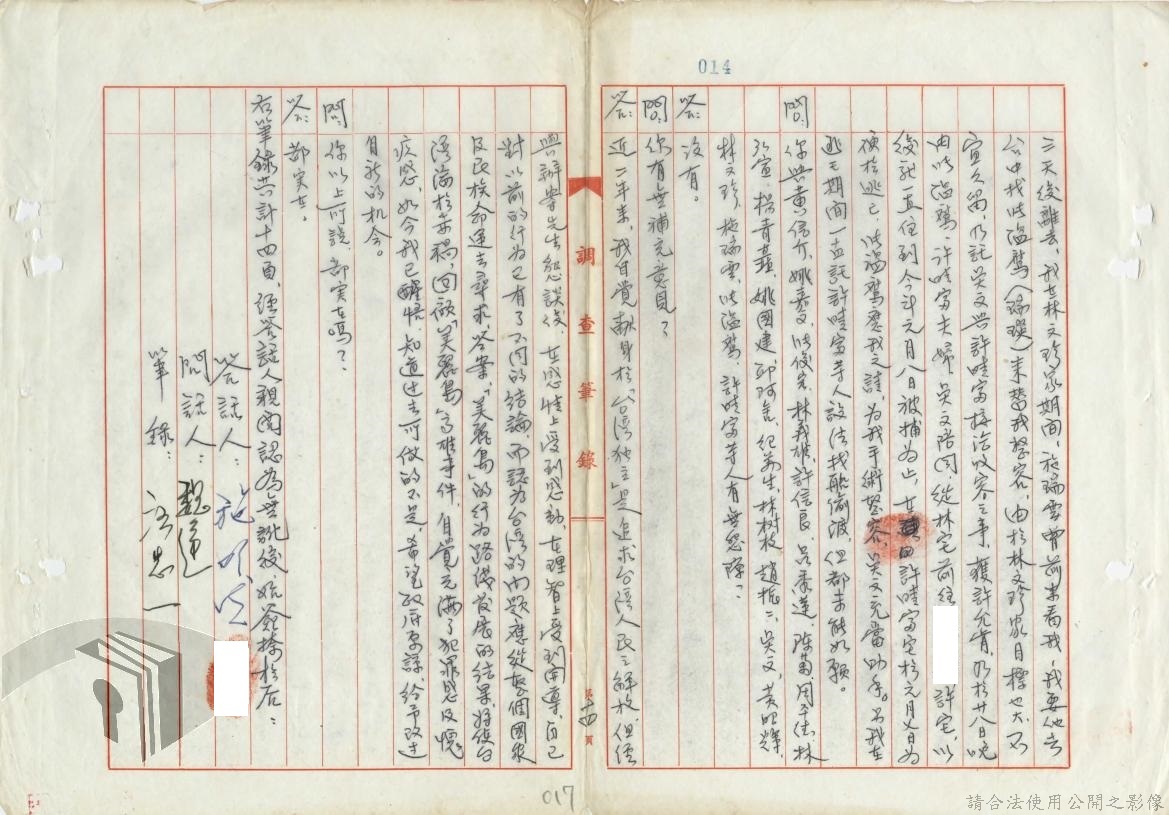 014
三天後離去,我在林文珍家期間,施瑞雲曾前來看我,我要他去
台中找張溫鷹(瑞瑛)來替我整容,由於林文珍家目標也大,不
宜久留,乃託吳文與許晴富接洽收容之事,獲許允肯,乃於廿八日晚
由張溫鷹、許晴富夫婦、吳文陪同,從林宅前往 許宅,以
後就一直住到今年元月八日被捕為止,在 許晴富宅於元月七日為
便於逃亡,張溫鷹應我之請,為我手術整容,吳文充當助手。另我在
逃亡期間一直託許晴富等人設法找船偷渡,但都未能如願。
問:你與黃信介、姚嘉文、張俊宏、林義雄、許信良、呂秀蓮、陳菊、周平德、林
弘宣、楊青矗、姚國建、邱阿舍、紀萬生、林樹枝、趙振二、吳文、黃昭輝、
林文珍、施瑞雲、張溫鷹、許晴富等人有無怨隙?
答:沒有。
問:你有無補充意見?
答:近二年來,我自覺獻身於「台灣独立」是追求台灣人民之解放,但經
調查筆錄
第十四頁
與辦案先生懇談後,在感情上受到感動,在理智上受到開導,自己
對以前的行为已有了不同的結論,而認为台灣的问题應從整個國家
及民族命運去尋求答案,「美麗島」的行为路线發展的結果,將使台
灣淪於赤禍,回顧「美麗島」高雄事件,自覺充滿了犯罪感及愧
疚感,如今我已醒悟,知道过去所做的不是,希望政府原諒,給予改过
自新的机会。
問:你以上所說,都实在嗎?
答:都实在。
右筆錄共計十四頁,經答話人親閱認為無訛後,始簽捺於后:
答話人:施明德
問話人:
筆錄:
017
請合法使用公開之影像